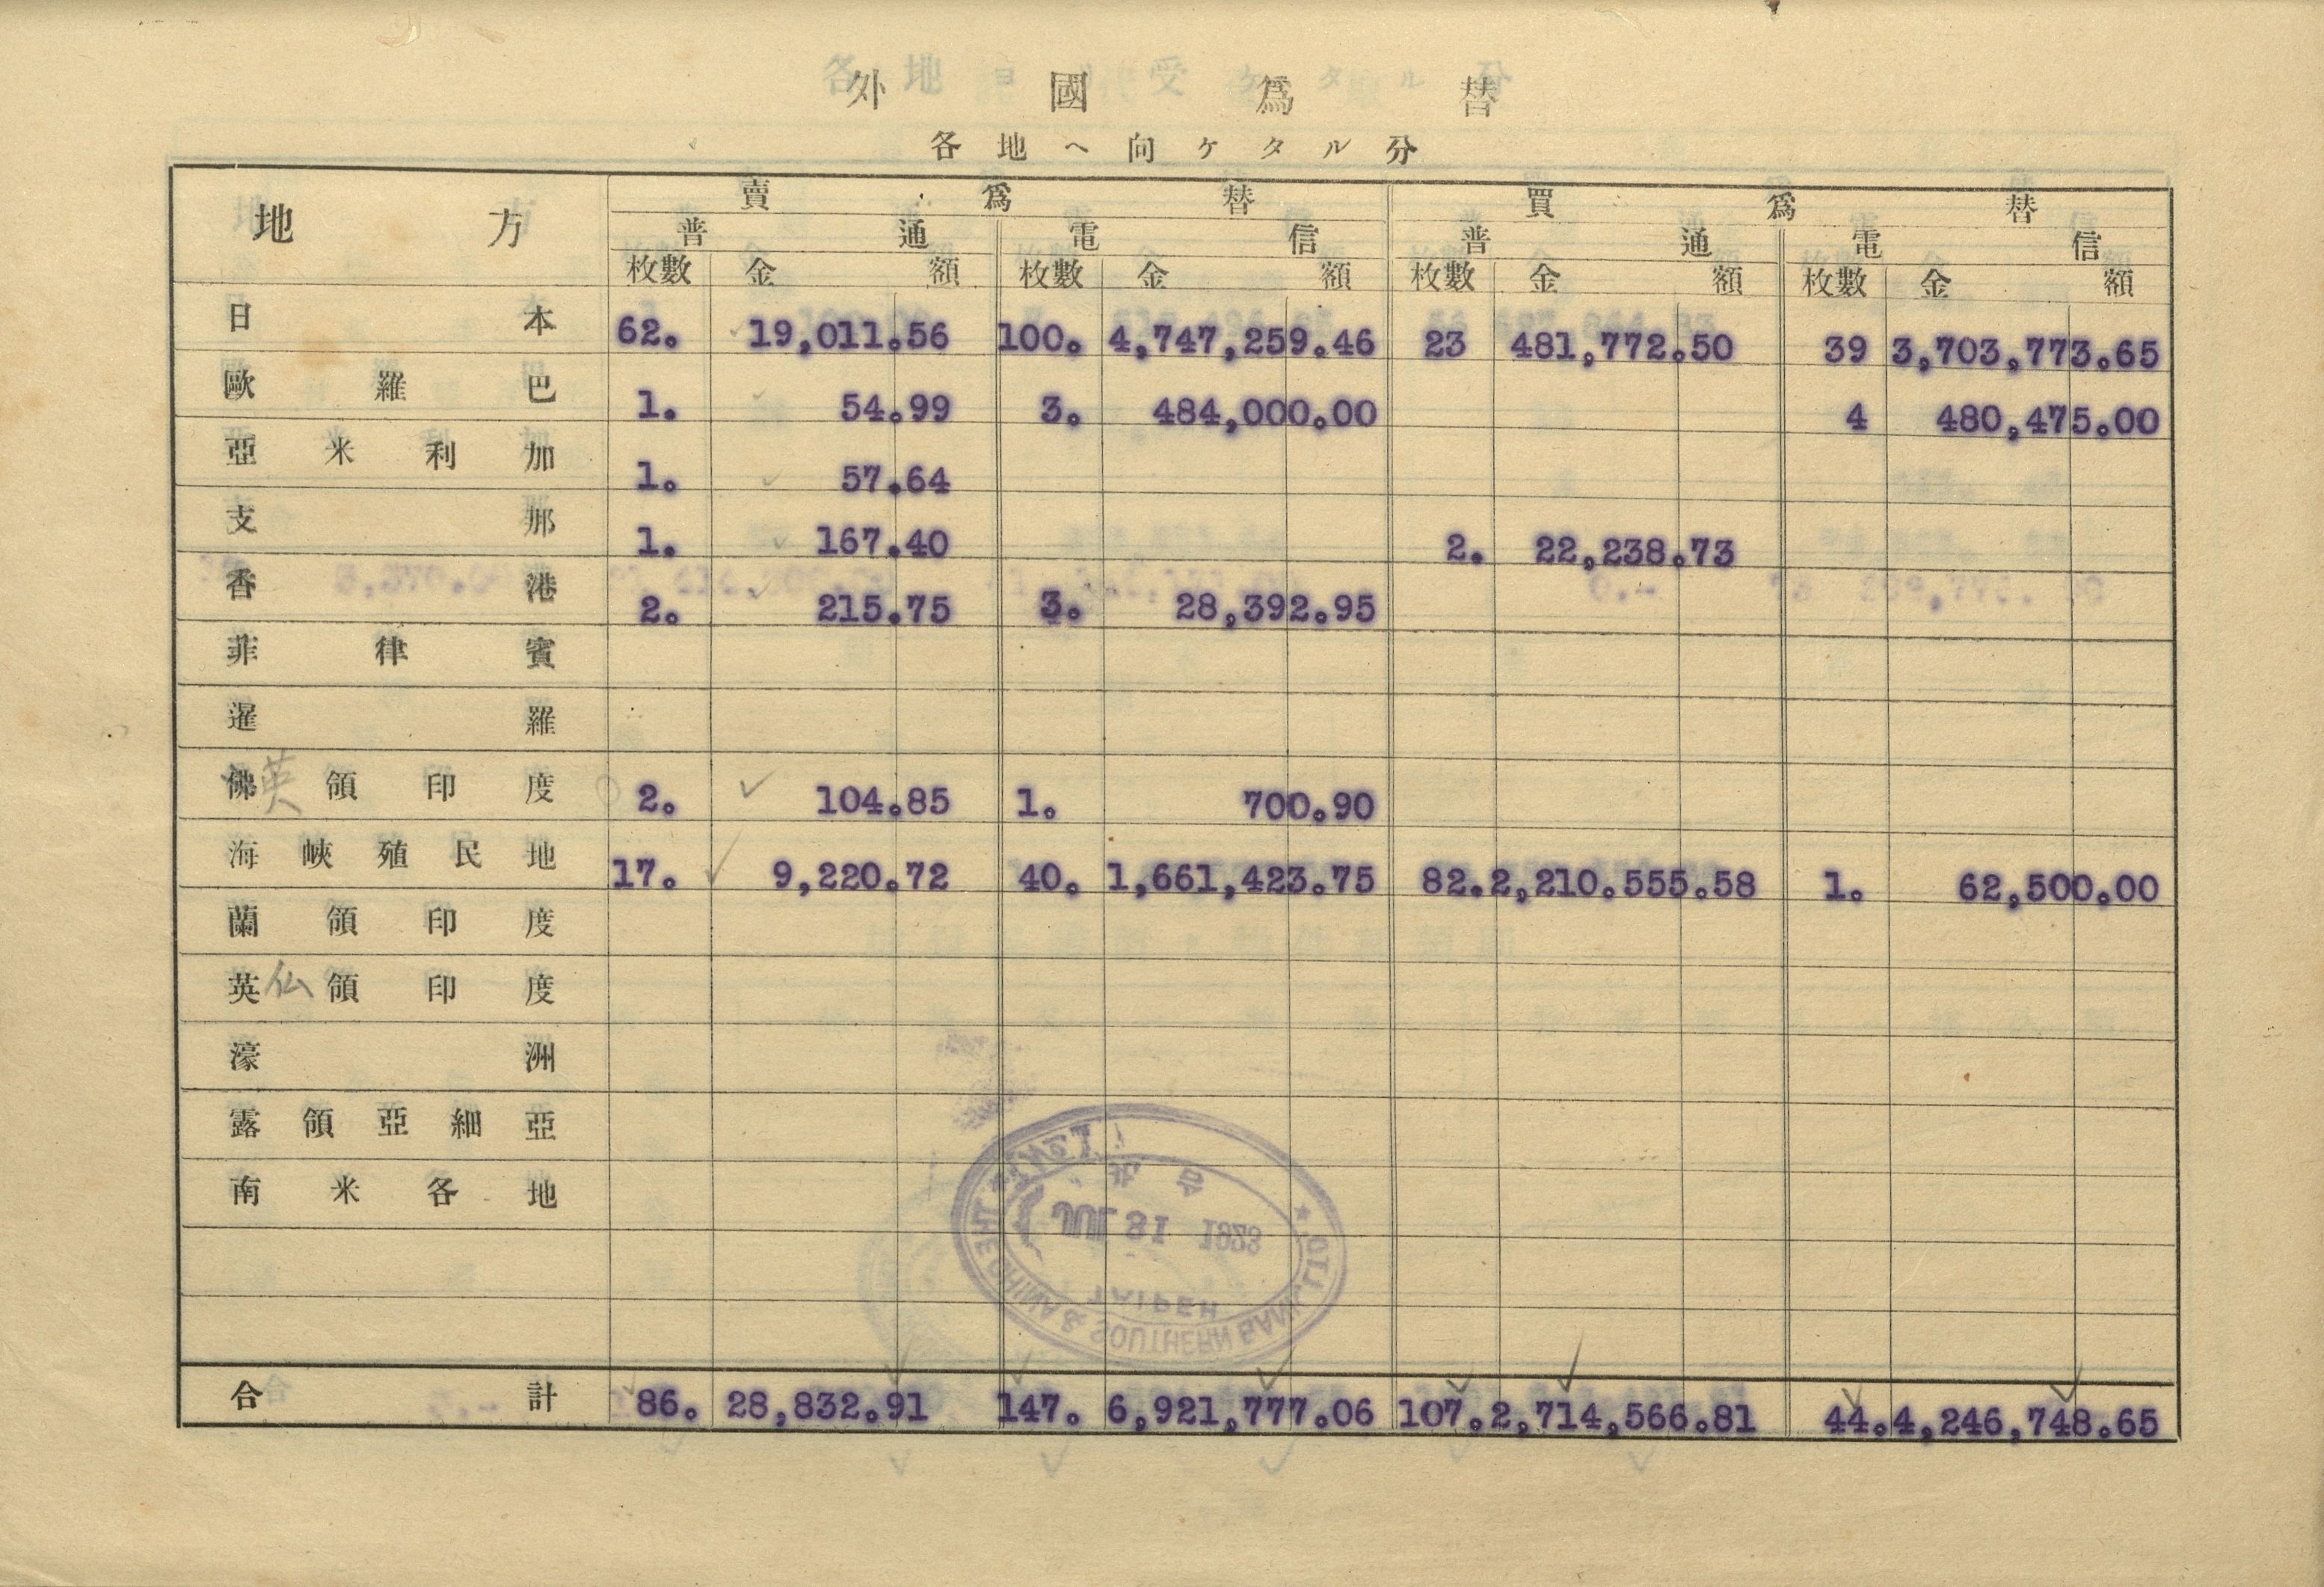 外國爲替
各地ヘ向ケタル分
地方 賣爲替 買爲替
普通 電信 普通 電信
枚數 金額 枚數 金額 枚數 金額 枚數 金額
日本 62. 19,011.56 100. 4,747,259.46 23 481,772.50 39 3,703,773.65
歐羅巴 1. 54.99 3. 484,000.00 4 480,475.00
亞米利加 1. 57.64
支那 1. 167.40 2. 22,238.73
香港 2. 215.75 3. 28,392.95
菲律賓
暹羅
佛英領印度 2. 104.85 1. 700.90
海峽殖民地 17. 9,220.72 40. 1,661,423.75 82. 2,210.555.58 1. 62,500.00
蘭領印度
英仏領印度
濠洲
露領亞細亞
南米各地
台北
JUL 31
TAIPEH
CHINA & SOUTHERN BANK, LTD.
合計 86. 28,832.91 147. 6,921,777.06 107. 2,714,566.81 44. 4,246,748.65